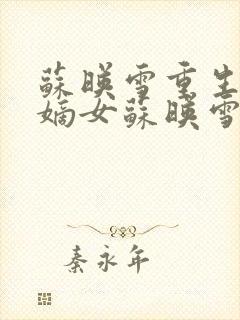 蘇暎雪重生
嫡女蘇暎雪
秦永年